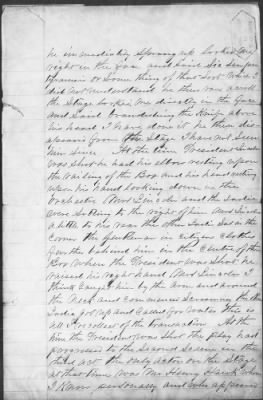 he immediately sprang up looked me
right in the face and said Sic Semper
Tyrannis or Something of that Sort Which I
did not understand he then ran across
the Stage looked me directly in the face
and Said brandishing the Knife above
his hand I have done it he then dis
appeared from the Stage I have not Seen
him Since At the time President Lincoln
was Shot he had his elbow resting upon
the railing of the Box and his head resting
upon his hand looking down in the
Orchestra Mrs Lincoln and the Ladies
were Sitting to the right of him Mrs Lincoln
a little to his rear the other Ladie Sat in the
Corner the gentleman in Citizens Clothes
further behind him in the Centre of the
Box When the President was Shot he
raised his right hand Mrs Lincoln I
think Caught him by the Arm and around
the Neck and Commenced Screaming the other
Ladie got up and Called for Water this is
all I recollect of the transaction At the
time the President was Shot the play had
progressed to the Second Scene in the
third act the only actor on the Stage
at that time was Mr Henry Hawk whom
I Know personally and who appeared